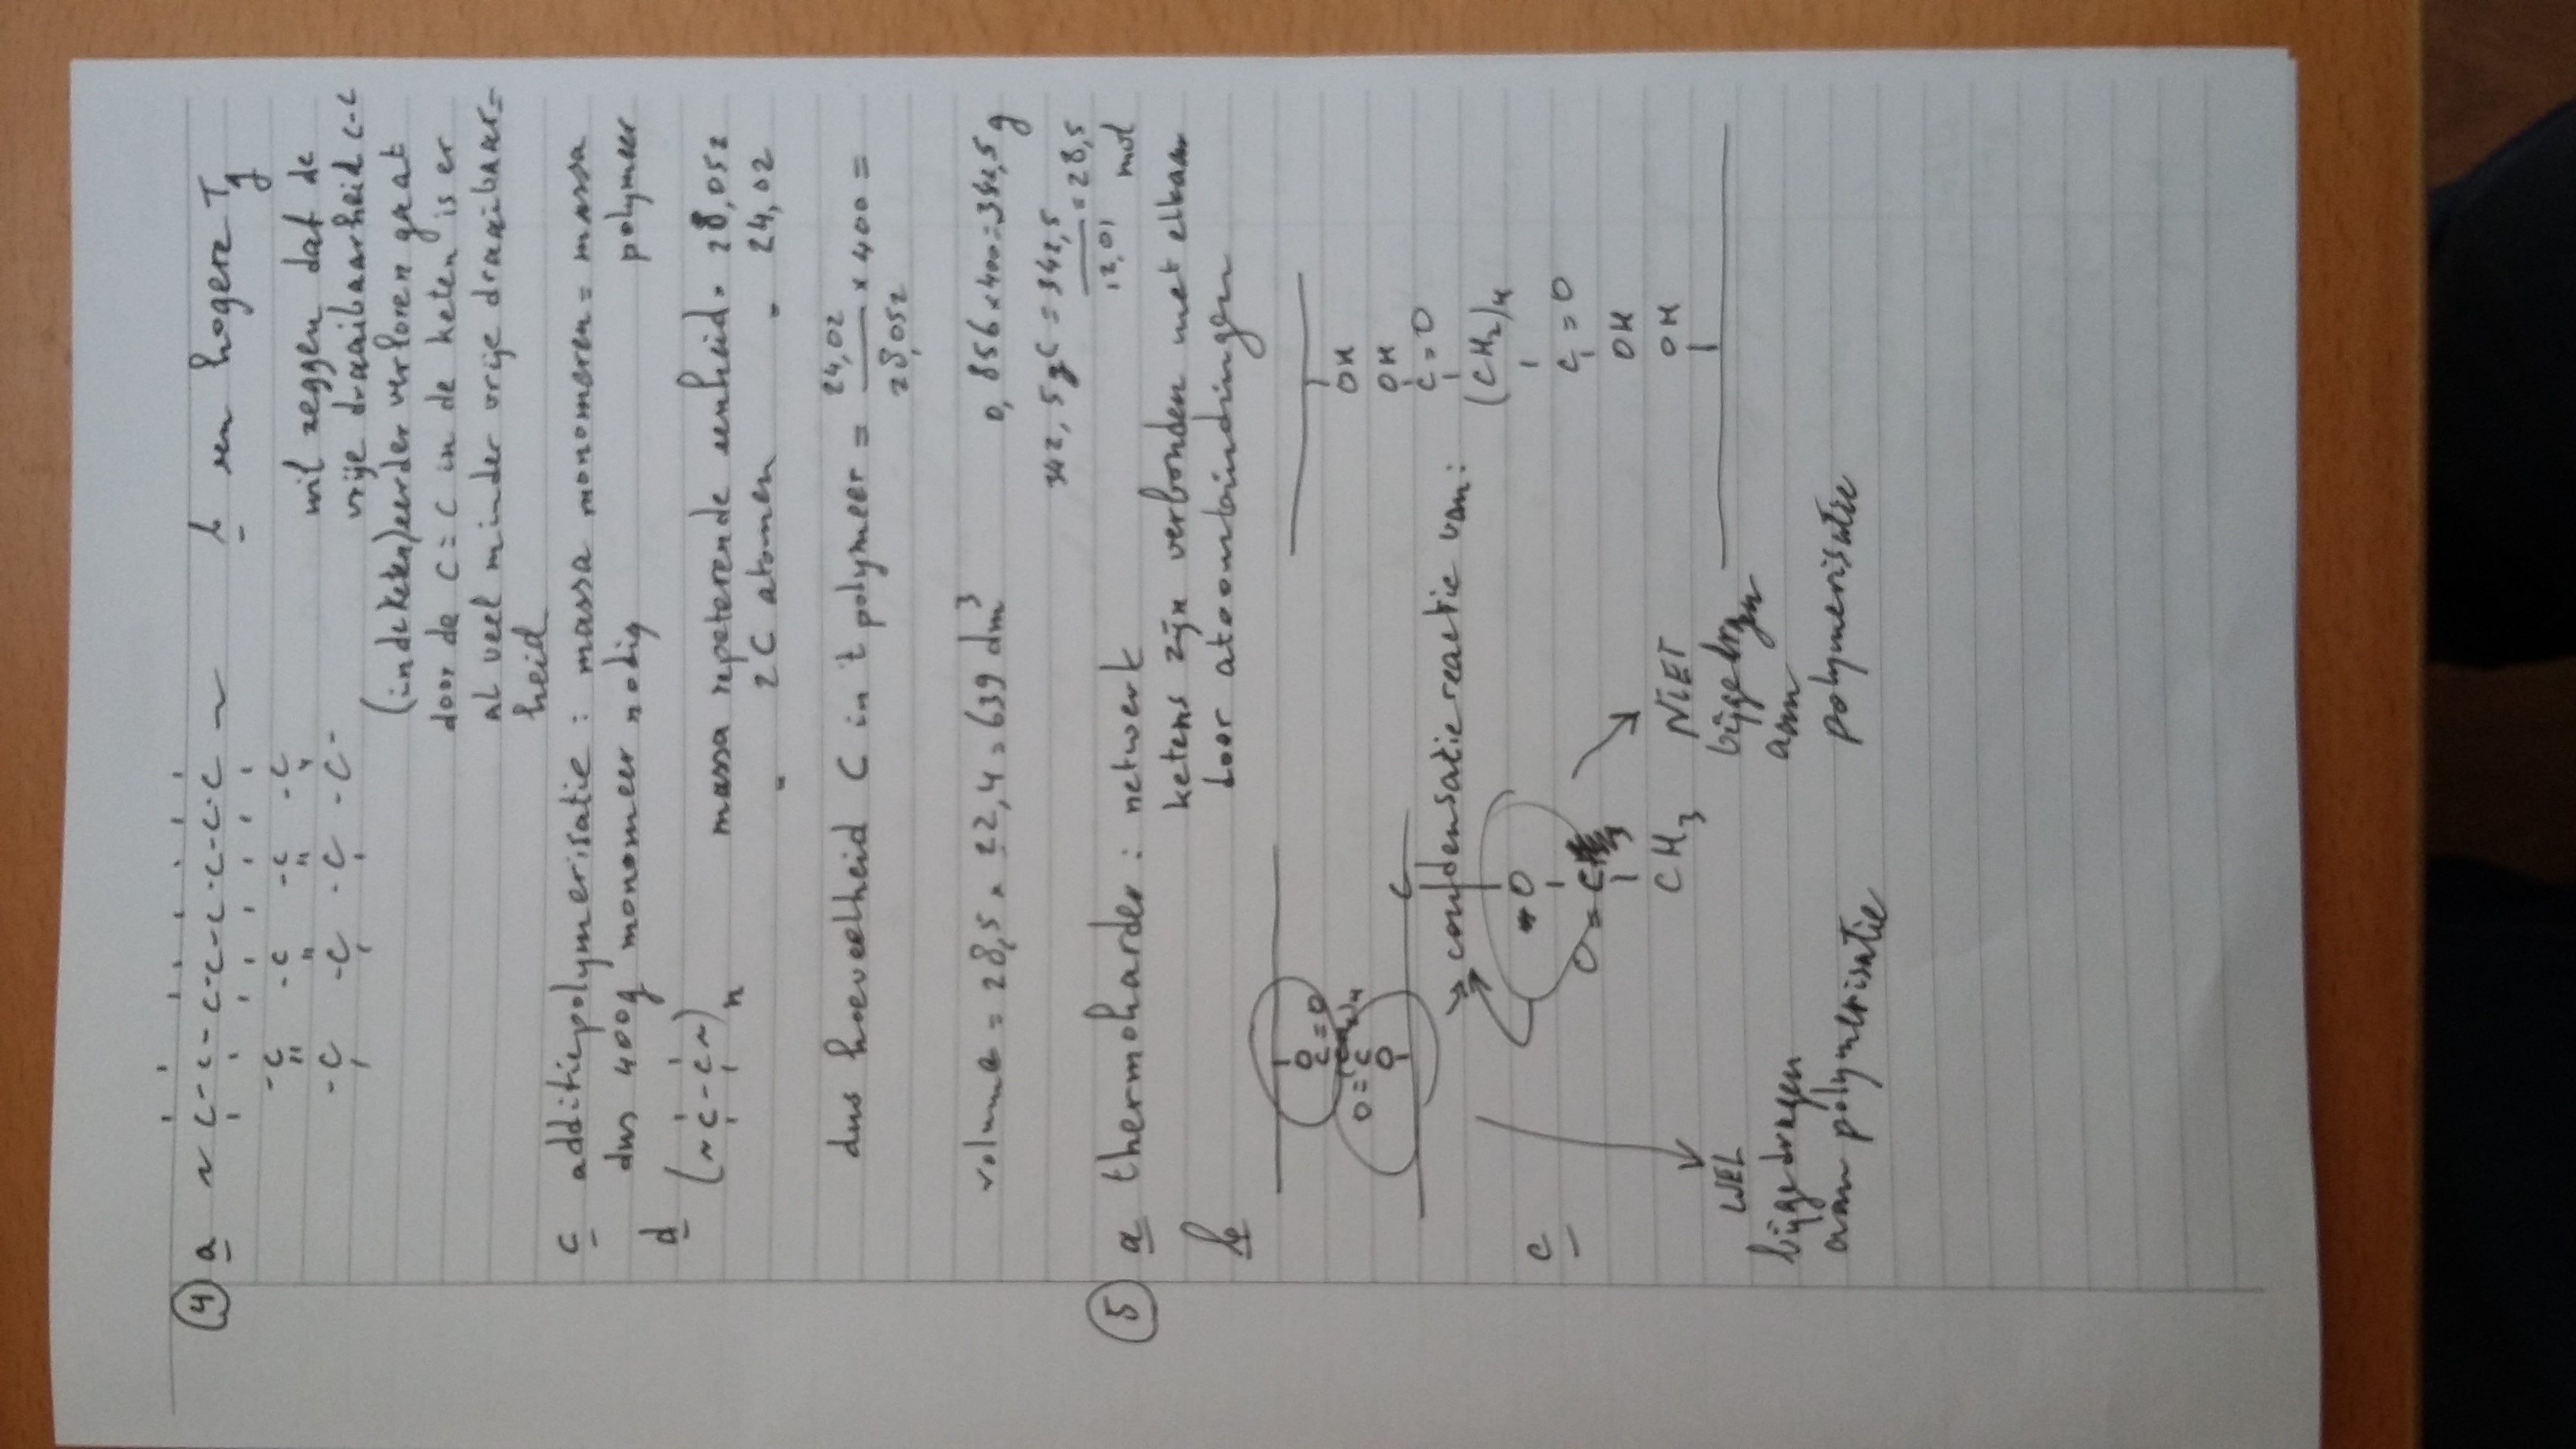 4 a ~ C - C - C - C - C - C - C - C ~
-C -C -C -C
-C -C -C -C-
b een hogere Tg
wil zeggen dat de
vrije draaibaarheid C-C
(in de keten) eerder verloren gaat
door de C=C in de keten is er
al veel minder vrije draaibaar=
heid
c additiepolymerisatie : massa monomeren = massa
polymeer
dus 400g monomeer nodig
d
(~C-C~)n
massa repeterende eenheid = 28,052
" 2 C atomen = 24,02
dus hoeveelheid C in 't polymeer = 24,02/28,052 x 400 =
0,856 x 400 = 342,5 g
342,5 g C = 342,5/12,01 = 28,5 mol
volume = 28,5 x 22,4 = 639 dm³
5 a thermoharder : netwerk
ketens zijn verbonden met elkaar
door atoombindingen
b
O
C=O
(CH2)4
O=C
O
C
condensatiereactie van:
OH
OH
C=O
(CH2)4
C=O
OH
OH
c
O
O=C
CH3
WEL
bijgedragen
aan polymerisatie
NIET
bijgedragen
aan
polymerisatie